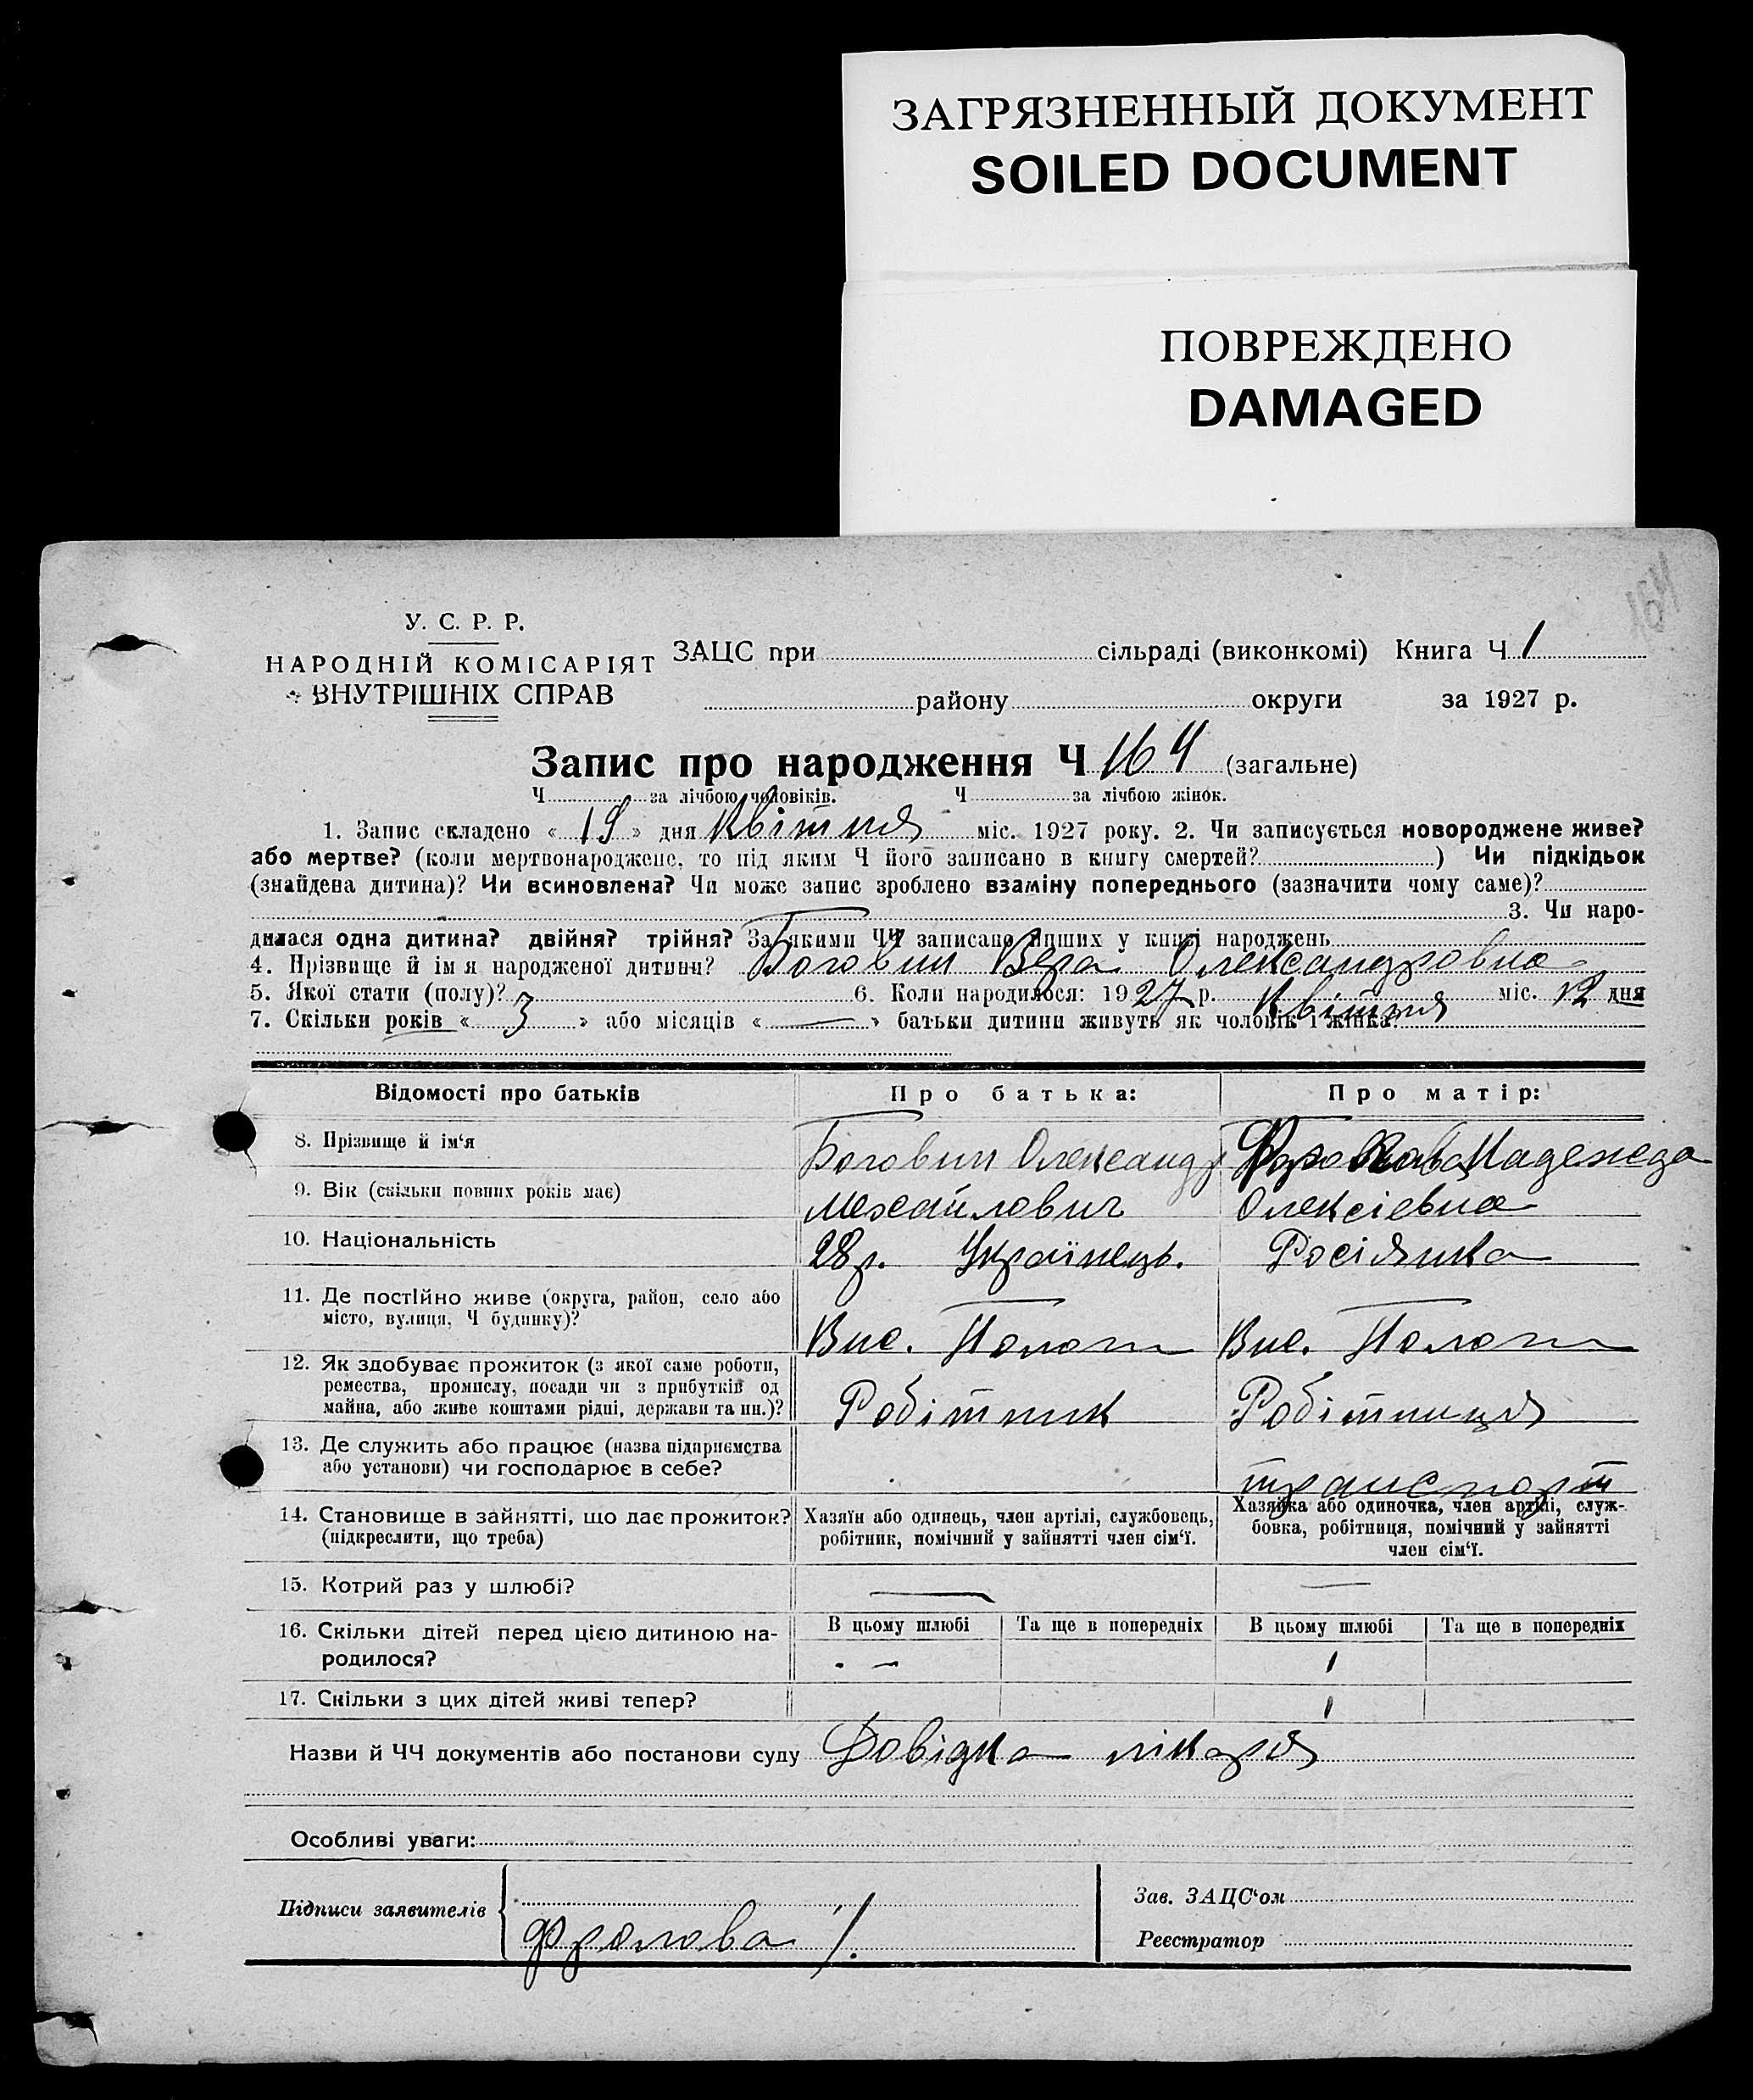 ЗАГРЯЗНЕННЫЙ ДОКУМЕНТ
SOILED DOCUMENT
ПОВРЕЖДЕНО
DAMAGED
164
У. С. Р. Р.
НАРОДНІЙ КОМІСАРІЯТ
ВНУТРІШНІХ СПРАВ
ЗАЦС при сільраді (виконкомі) Книга Ч 1
району округи за 1927 р.
Запис про народження Ч 164 (загальне)
Ч за лічбою чоловіків. Ч за лічбою жінок.
1. Запис складено « 19 » дня Квітня міс. 1927 року. 2. Чи записується новороджене живе?
або мертве? (коли мертвонароджене, то під яким Ч його записано в книгу смертей? ) Чи підкідьок
(знайдена дитина)? Чи всиновлена? Чи може запис зроблено взаміну попереднього (зазначити чому саме)?
3. Чи наро-
дилася одна дитина? двійня? трійня? За якими ЧЧ записано инших у книзі народжень
4. Прізвище й ім я народженої дитини? Боговин Вера Олександровна
5. Якої стати (полу)? 6. Коли народилося: 1927 р. Квітня міс. 12 дня
7. Скільки років « 3 » або місяців « — » батьки дитини живуть як чоловік і жінка?
Відомості про батьків Про батька: Про матір:
8. Прізвище й ім‘я Боговин Олександр Фролова Надежда
9. Вік (скільки повних років має) Михайлович Олексіевна
10. Національність 28 р. Українець. Росіянка
11. Де постІйно живе (округа, район, село або
місто, вулиця, Ч будинку)? Вис. Пологи Вис. Пологи
12. Як здобуває прожиток (з якої саме роботи,
ремества, промислу, посади чи з прибутків од
майна, або живе коштами рідні, держави та ин.)? Робітник Робітниця
13. Де служить або працює (назва підприємства
або установи) чи господарює в себе? транспорт
14. Становище в зайнятті, що дає прожиток?
(підкреслити, що треба)
Хазяїн або одинець, член артілі, службовець,
робітник, помічний у зайнятті член сім‘ї.
Хазяйка або одиночка, член артілі, служ-
бовка, робітниця, помічний у зайнятті
член сім‘ї.
15. Котрий раз у шлюбі? — —
16. Скільки дітей перед цією дитиною на-
родилося?
В цьому шлюбі Та ще в попередніх В цьому шлюбі Та ще в попередніх
— 1
17. Скільки з цих дітей живі тепер? 1
Назви й ЧЧ документів або постанови суду Довідка лікаря
Особливі уваги:
Підписи заявителів
Фролова
Зав. ЗАЦС‘ом
Реєстратор